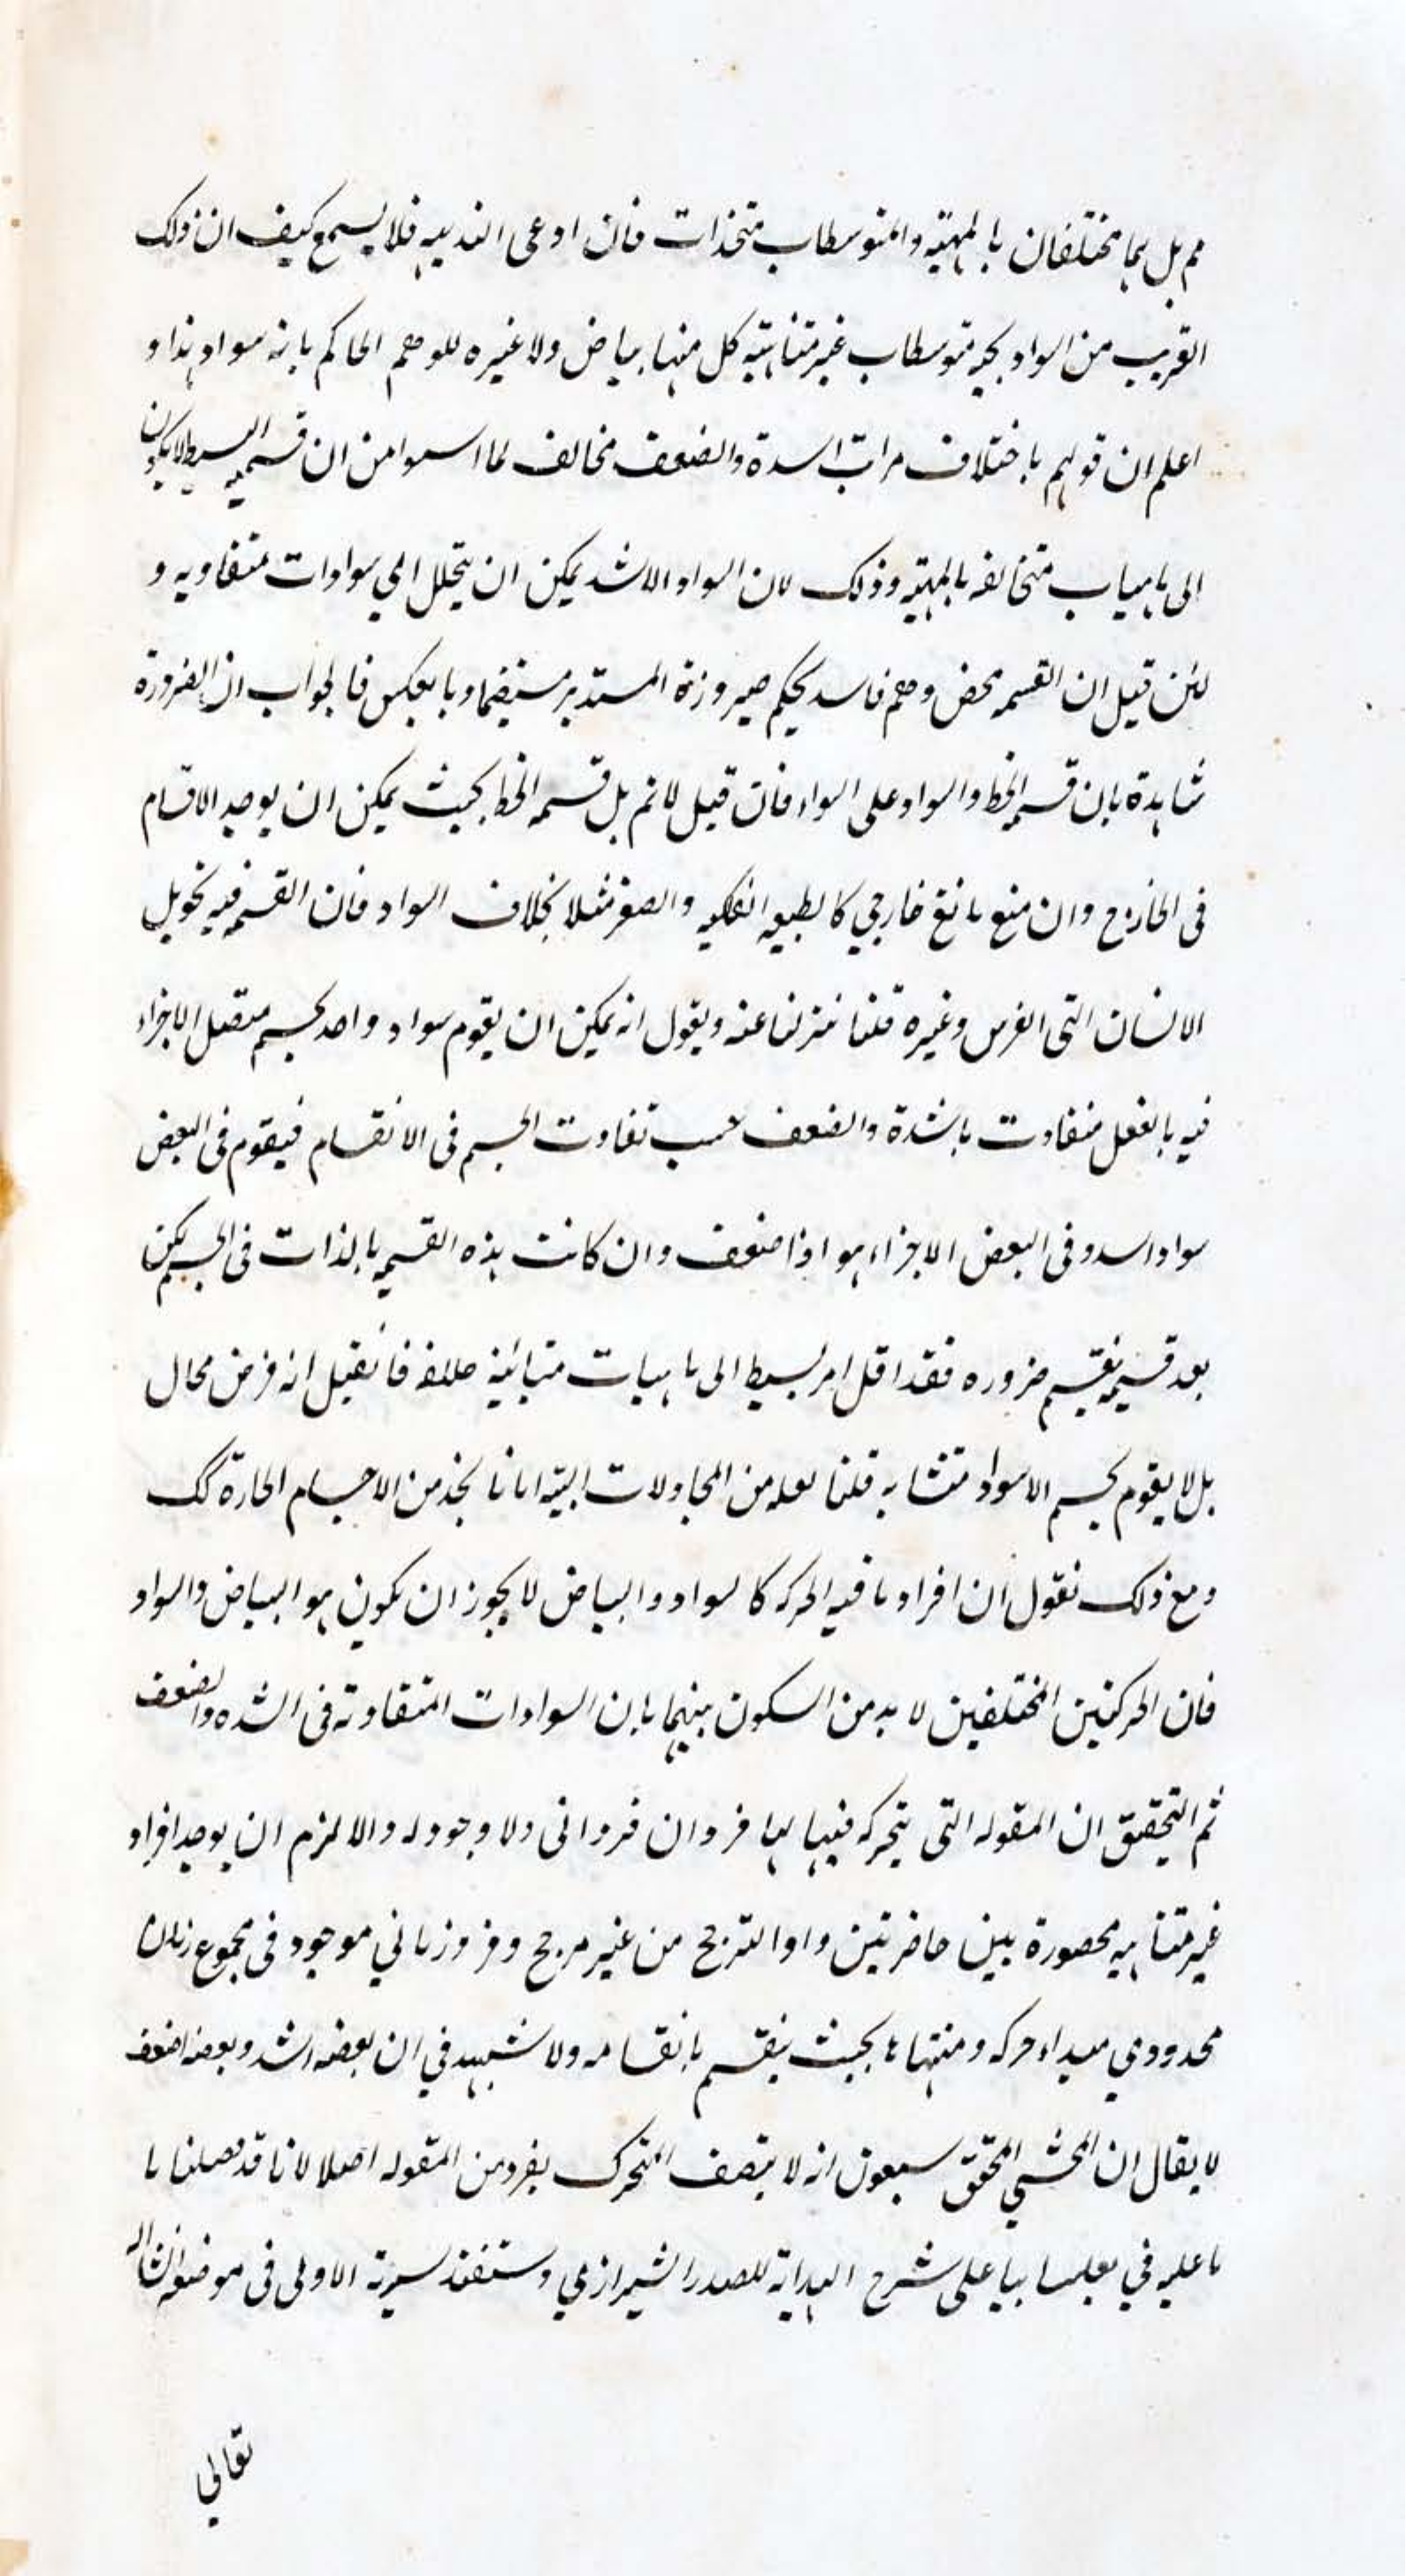 مم بل هما مختلفان بالمهيته والمتوسطاب متخذات فان ادعى البديهيه فلا يسمع كيف ان ذلك
القريب من السواد بجيه متوسطاب غير متناهيته كل منها بياض ولا غيره للوهم الحاكم بانه سواد هذا و
اعلم ان قولهم باختلاف مراتب اسدة والضعف مخالف لما اسسوا من ان قسمة البسيط لا يكون
الى ماهياب متخالفه بالمهيته وذلك لان السواد الاشد يمكن ان يتحلل الى سوادات متفاويه و
لئن قيل ان القسمه محض وهم فاسد كحكم صيروزة المستدير مستقيما وبالعكس فالجواب ان الضرورة
شاهدة بان قسمة الخط والسواد على السواء فان قيل لا نم بل قسمه الخط بحيث يمكن ان يوجد الاقسام
فى الخارج وان منع مانع خارجي كالطبيعه الفلكيه والصغر مثلا بخلاف السواد فان القسمة فيه تحويل
الانسان التى الفرس وغيره قلنا نتنزلنا عنه ويقول انه يمكن ان يقوم سواد واحد بجسم متصل الاجزاء
فيه بالفعل متفاوت باشدة والضعف حسب تفاوت الجسم فى الانقسام فيقوم فى البعض
سواد اسد وفى البعض الاجزاء هو اذا ضعف وان كانت هذه القسمه بالذات فى الجسم لكن
بعد قسمته يقسم ضروره فقد اقل امر بسيط الى ماهيات متبائنة فانقيل انه فرض محال
بل لا يقوم بجسم الا سواد متشابه قلنا لعله من المجادلات البته اما نا نجد من الاجسام الحارة كك
ومع ذلك نقول ان افراد ما فيه الحركه كالسواد والبياض لا يجوز ان يكون هو البياض والسواد
فان الحركتين المختلفين لا بد من السكون بينهما بان السوادات المتفاوته فى الشده والضعف
ثم التحقيق ان المقوله التى يتحركه فيها لها فردان فرد انى ولا وجود له والا لزم ان يوجد افراد
غير متناهيه محصورة بين حاضرتين واو الترجح من غير مرجح وفرد زمانى موجود فى مجموع زمان
محدودي مبداء حركه ومنتهاها بحيث ينقسم بانقسامه ولا شبهه في ان بعضه اشد وبعضه اضعف
لا يقال ان المحشي المحقق سيعون انه لا يتصف المتحرك بفرد من المقوله اصلا لانا قد فصلنا ما
ما عليه في على شرح الهداية للصدر الشيرازي وستفند سيرته الاولى فى موضعه انشا الله
تعالي